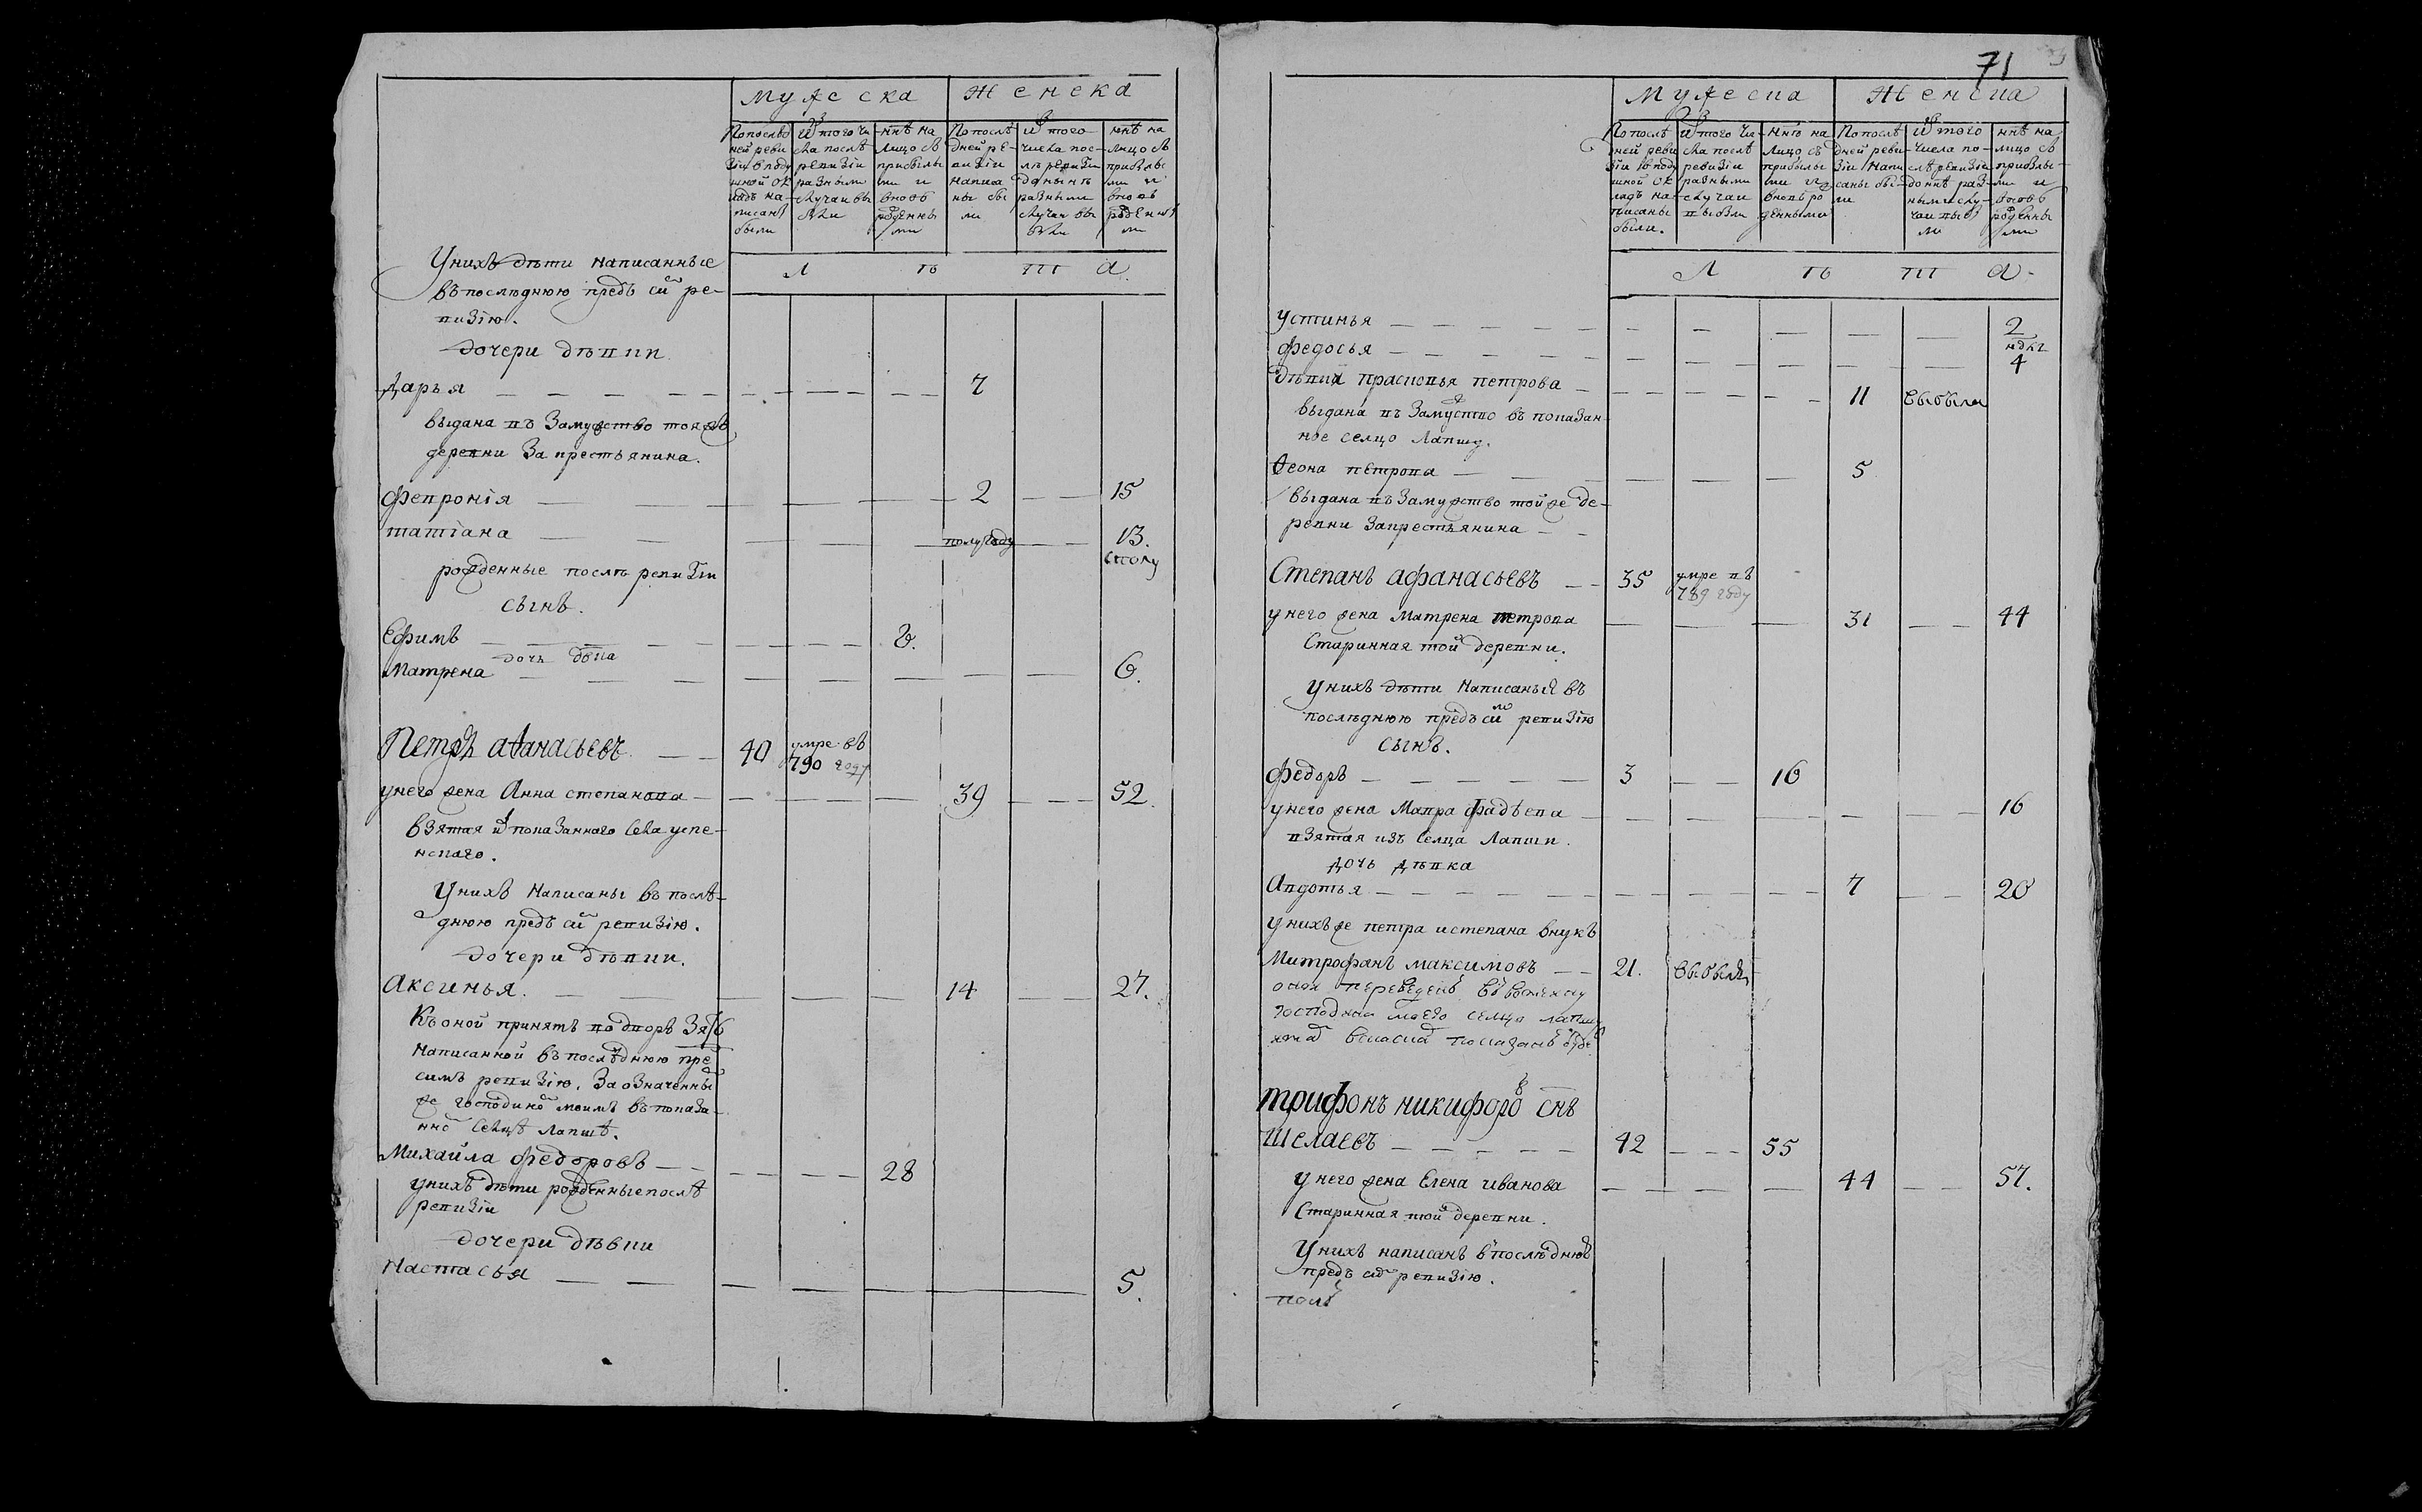 Мужеска
Женска
По последней ревизiи в подушной окладъ написаны были
Из того числа после ревизiи разными случаи выбыли
Ныне на лицо съ прибылыми и вновь рожденными
По последней ревизiи написаны были
Из того числа после ревизiи разными случаи выбыли
ныне на лицо съ прибылыми и вновь рожденными
лѣта
У нихъ дѣти написанные
въ последнюю предъ сей ре-
визiю.
дочери дѣвки
Дарья 7
выдана въ замужство тояжъ
деревни за крестьянина.
Февронiя 2 15
татiана полугоду 13.
рожденные послѣ ревизiи
сынъ.
Ефимъ
дочь дѣвка
Матрена 6.
Петръ аѳанасьевъ 40 умре въ
790 году
у него жена Анна степанова 39 52.
взятая из показанного села успе-
нскаго.
У нихъ написаны въ послѣ-
днюю предъ сей ревизiю.
дочери дѣвки.
Аксинья. 14 27.
Къ оной принятъ во дворъ зять
написанной въ послѣднюю пре
симъ ревизiю. За означеннымъ
же господиномъ моимъ въ показа-
нномъ селце лапше.
Михайла федоровъ 28
у нихъ дѣти рожденные послѣ
ревизiи
дочери дѣвки
Настасья 5.
71
Мужеска
Женска
По послѣдней ревизiи в подушной окладъ написаны были.
Из того числа послѣ ревизiи разными случаи выбыли
Ныне на лицо съ прибылыми и вновь рожденными
По послѣдней ревизiи написаны были
Из того числа послѣ ревизiи до ныне разными случаи выбыли
ныне на лицо съ прибылыми и вновь рожденны ми
лѣта.
устинья 2
недел
федосья 4
дѣвка прасковья петрова 11 выбыла
выдана въ замужство въ показан-
ное селцо лапшу.
Ѳеона петрова 5
выдана въ замужство той же де-
ревни за крестьянина
Степанъ афанасьевъ 35 умре въ
789 году
у него жена матрена петрова 31 44
Старинная той деревни.
У нихъ дѣти написаныя въ
послѣднюю предъ сей ревизiю
сынъ.
федоръ 3 16
у него жена Мавра фадѣева 16
взятая изъ селца лапши.
дочь дѣвка
Авдотья 7 20
У нихъ же петра и степана внукъ
Митрофанъ максимовъ 21. выбылъ
оной переведенъ
господина моего селцо лапшу
показанъ буде
трифонъ никифоровъ снъ
шелаевъ 42 55
у него жена Елена иванова 44 57.
Старинная той деревни.
У нихъ написанъ в послѣднюю
предъ сей ревизiю.